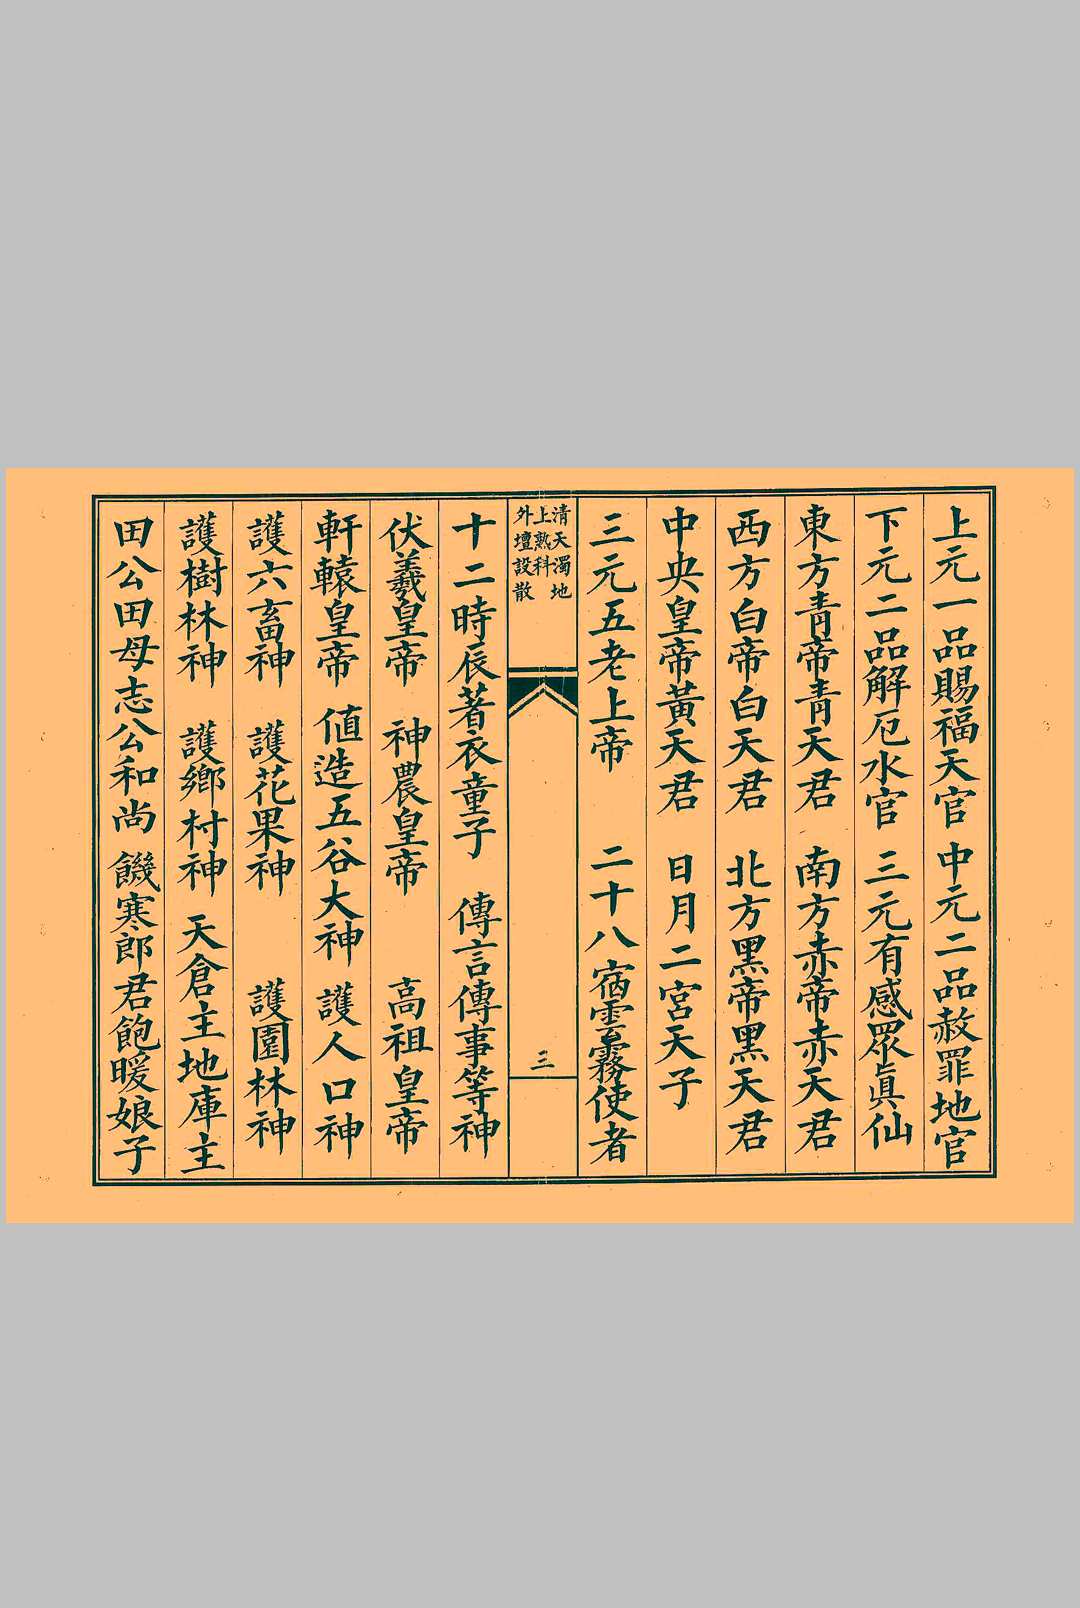 上元一品賜福天官 中元二品赦罪地官
下元二品解厄水官 三元有感眾真仙
東方青帝青天君 南方赤帝赤天君
西方白帝白天君 北方黑帝黑天君
中央皇帝黃天君 日月二宮天子
三元五老上帝 二十八宿雲霧使者
清天濁地
上熟科
外壇設散
三
十二時辰著衣童子 傳言傳事等神
伏羲皇帝 神農皇帝 高祖皇帝
軒轅皇帝 值造五谷大神 護人口神
護六畜神 護花果神 護園林神
護樹林神 護鄉村神 天倉主地庫主
田公田母志公和尚 饑寒郎君飽暖娘子